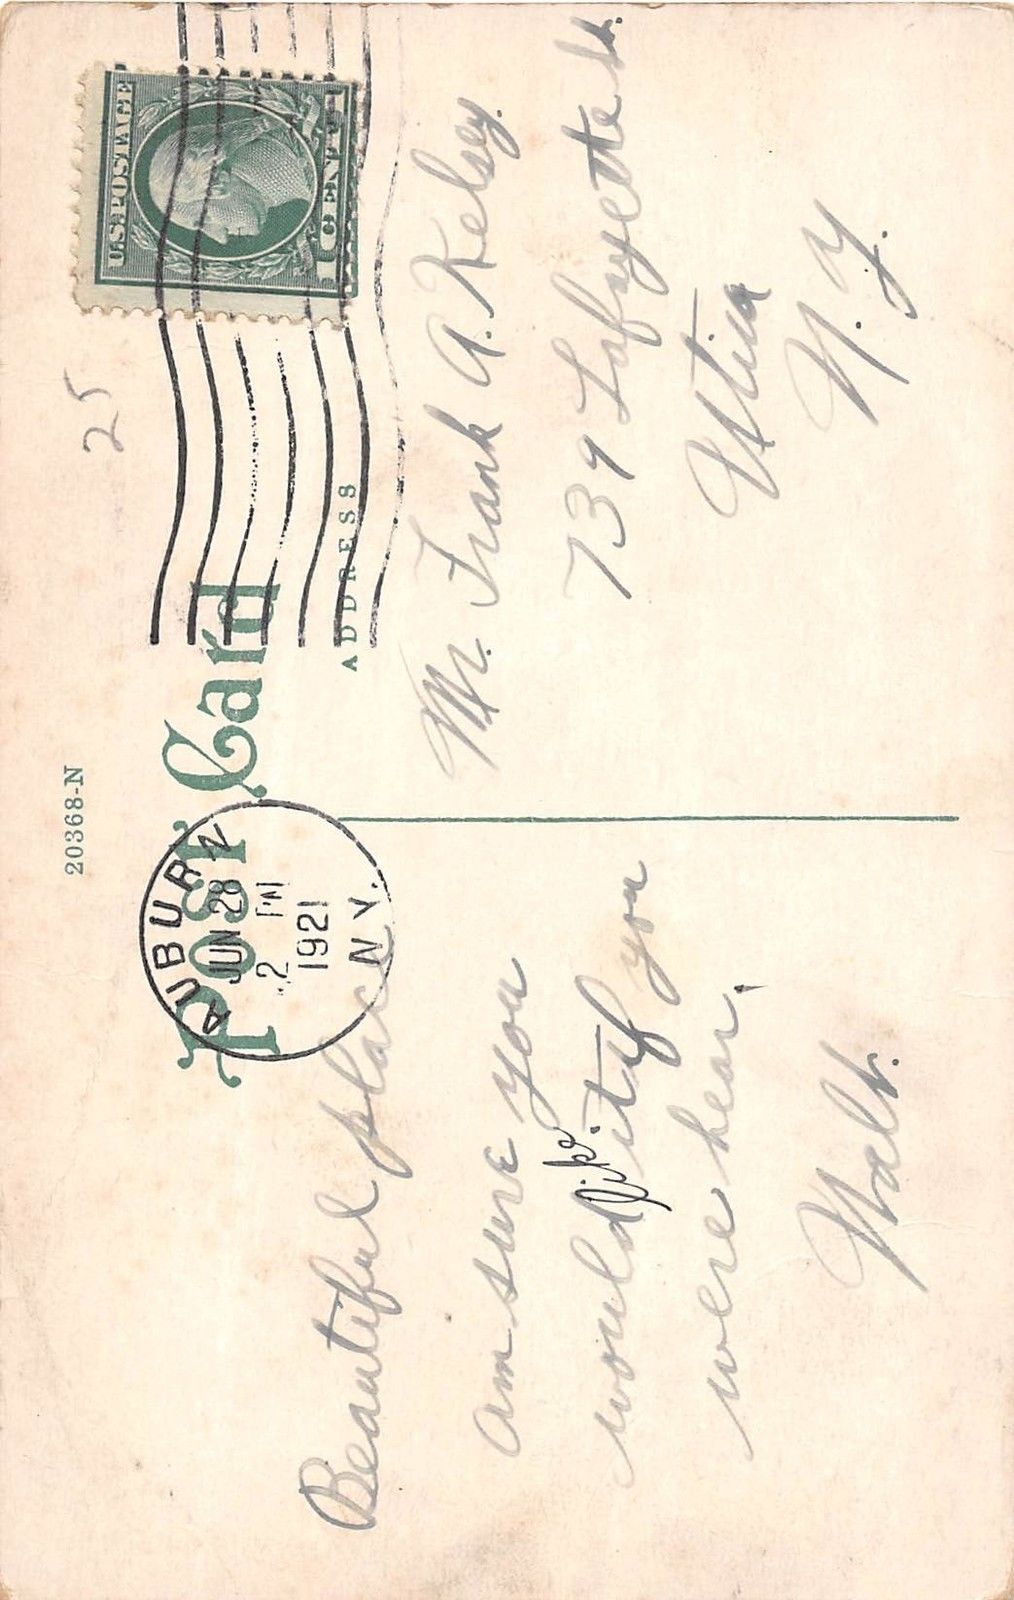 20368-N
25
U.S. POSTAGE
1 CENT 1
Post Card
AUBURN
JUN 28
2 PM
1921
N.Y.
ADDRESS
Beautiful place
am sure you
would like it if you
were hear.
Walt.
Mr. Frank A. Kelsey.
739 Lafayette St.
Utica
N.Y.